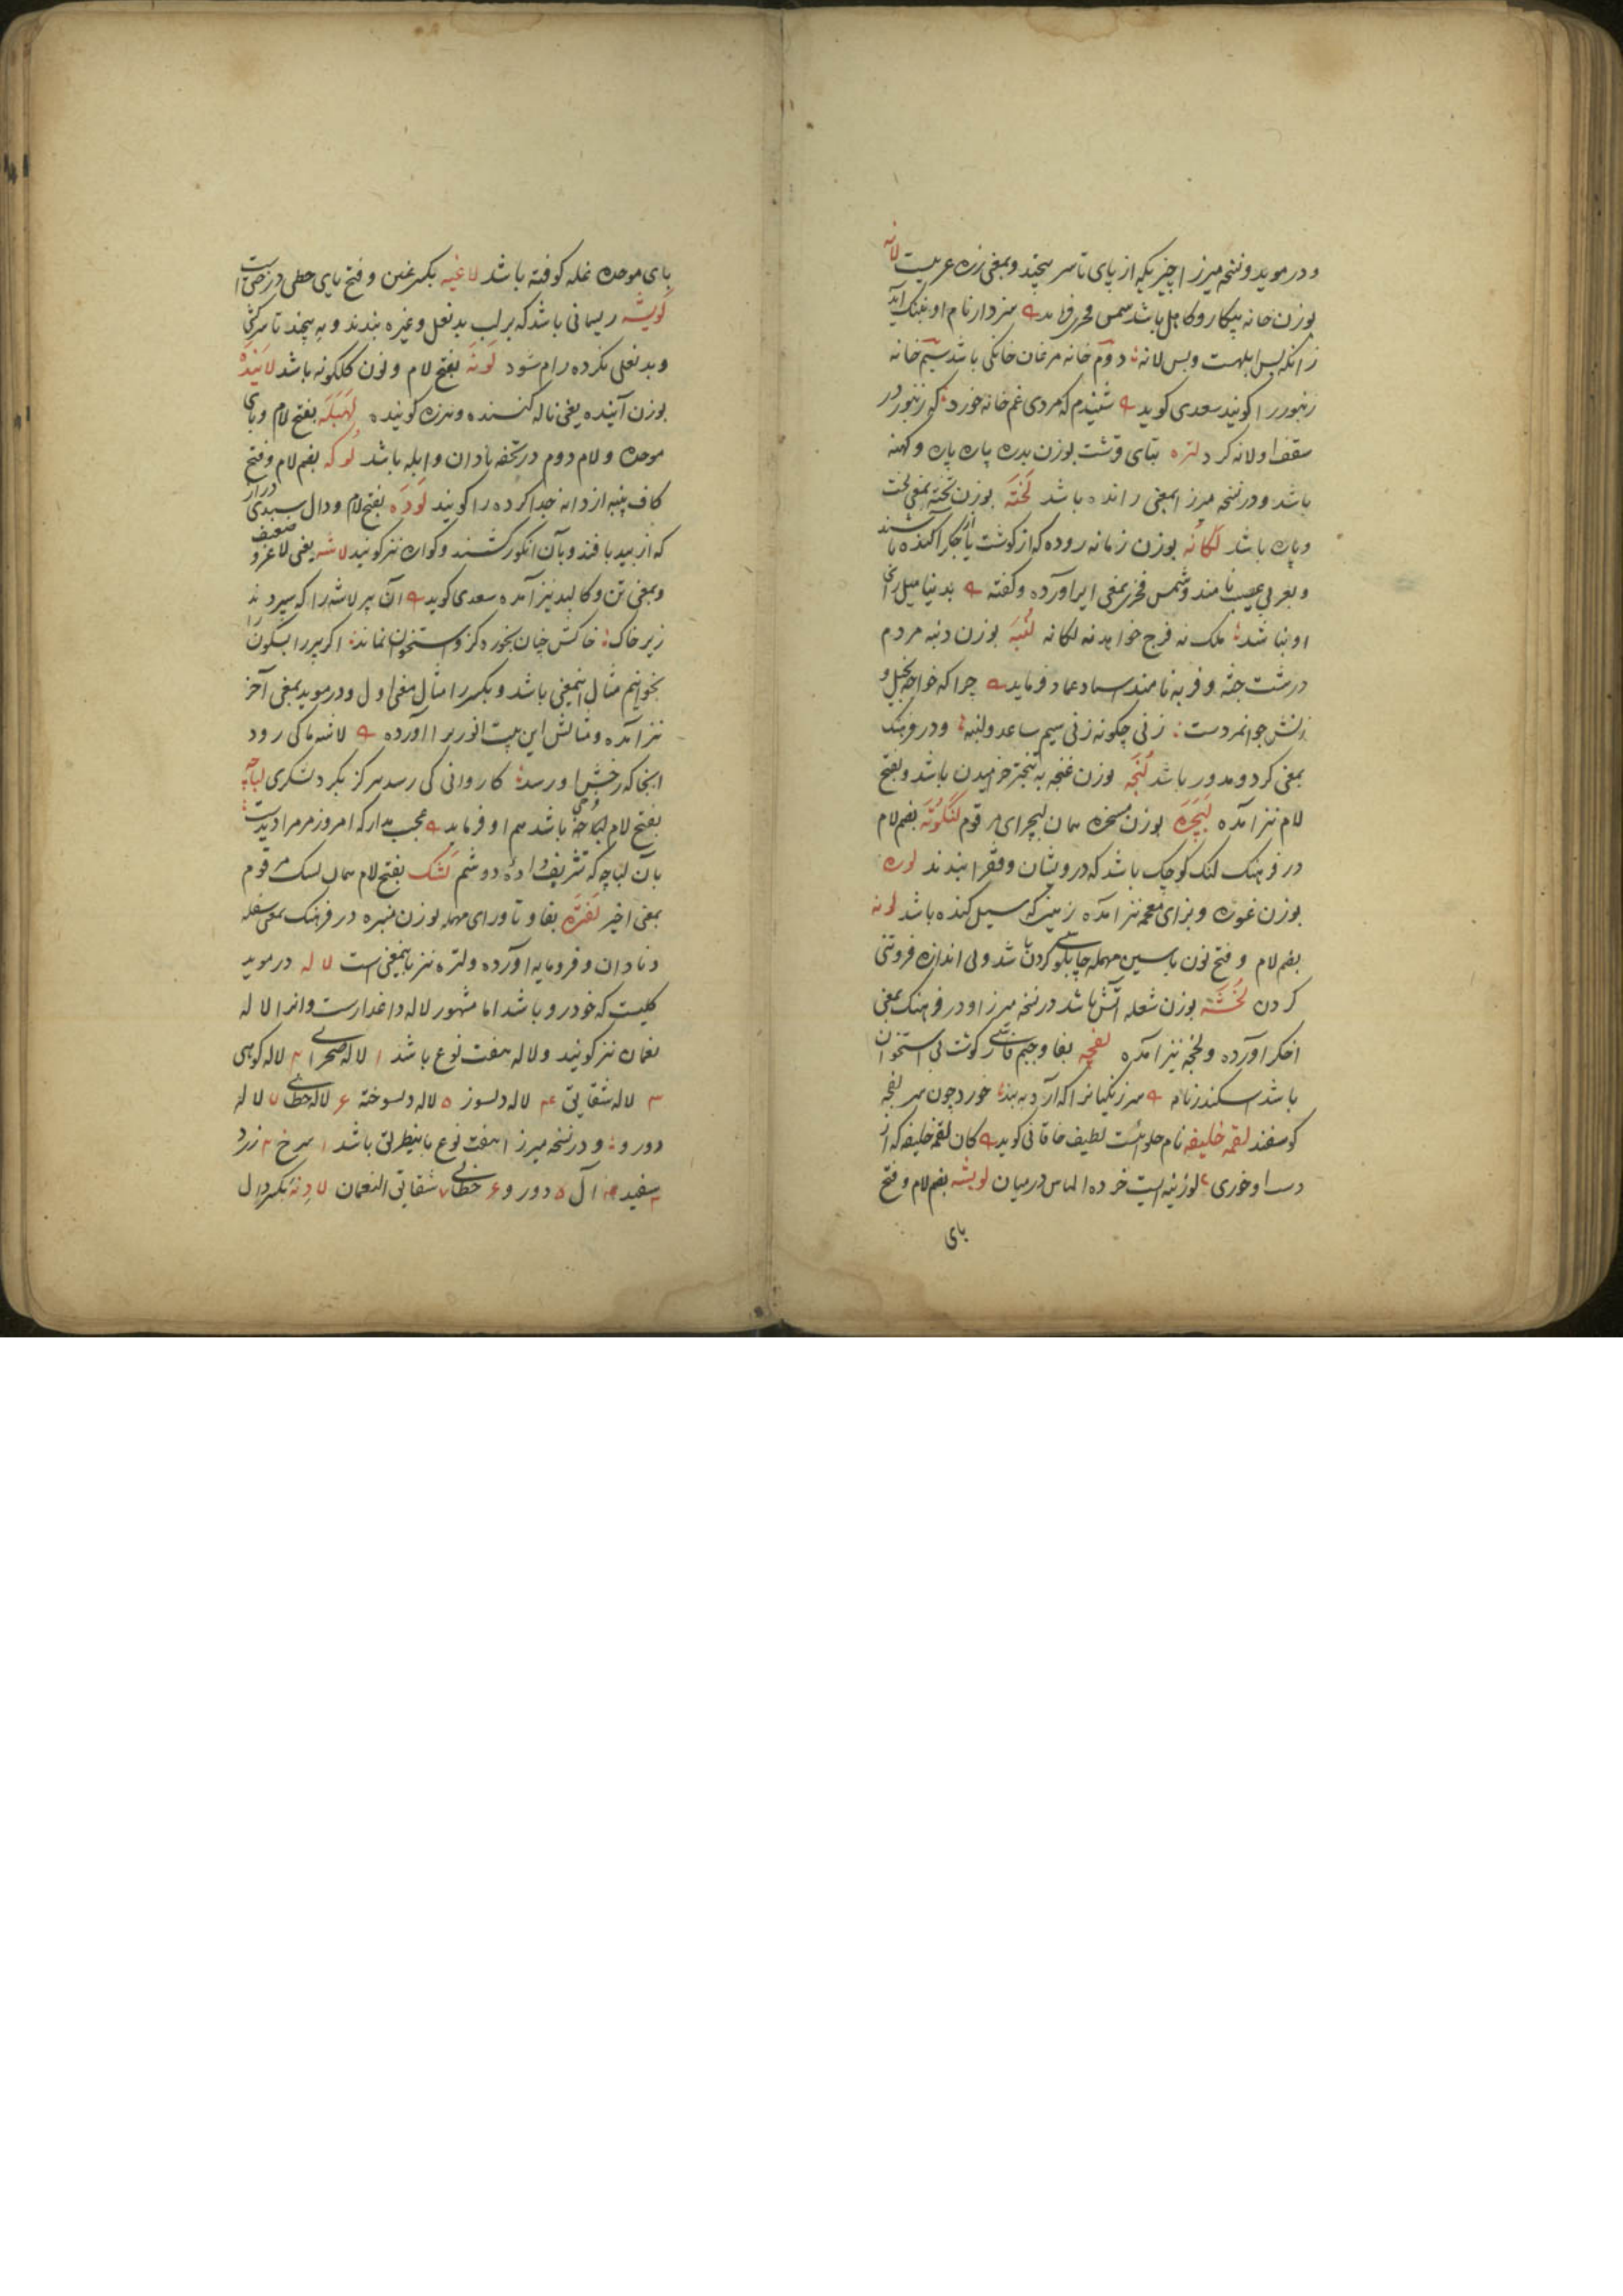 و در موید و نسخه میرزا چیزیکه از پای تا سر پیچند و بمعنی زره عربیست لانه
بوزن خانه بیکار و کاهل باشد شمس فخری فرماید سزد ار نام او بننگ آید
زانکه بس ابلهست و بس لانه دوم خانه مرغان خانکی باشد سیم خانه
زنبور را کویند سعدی کوید شنیدم که مردی غم خانه خورد که زنبور در
سقف او لانه کرد لتره بتای قرشت بوزن بدره پاره پاره و کهنه
باشد و در نسخه میرزا بمعنی رانده باشد لخته بوزن تخته بمعنی لخت
و پاره باشد لکانه بوزن زمانه روده که از کوشت یا جکر آکنده باشند
و بعربی عصیب نامند و شمس فخری بمعنی ایر آورده و کفته بدنیا میل رای
او نباشد ملک نه فرج خواهد نه لکانه لنبه بوزن دنبه مردم
درشت جثه و فربه نامند استاد عماد فرماید چرا که خواجه بخیل و
زنش جوانمردست زنی چکونه زنی سیم ساعد و لنبه و در فرهنک
بمعنی کرد و مدور باشد لنجه بوزن غنجه به تبختر خرامیدن باشد و بفتح
لام نیز آمده لبچره بوزن مسخره همان لبچرای مرقوم لنکوته بضم لام
در فرهنک لنک کوچک باشد که درویشان و فقرا بندند لوره
بوزن غوره و بزای معجمه نیز آمده زمینی که سیل کنده باشد لوسه
بضم لام و فتح نون یا سین مهمله چاپلوسی کردن باشد و بی اندازه فروتنی
کردن لخشه بوزن شعله آتش باشد در نسخه میرزا و در فرهنک بمعنی
اخکر آورده و لخچه نیز آمده لفچه بفا و جیم فارسی کوشت بی استخوان
باشد سکندرنامه سر زنکیانرا که آرد به بند خورد چون سر لفچه
کوسفند لقمه خلیفه نام حلوائیست لطیف خاقانی کوید کان لقمه خلیفه که از
دست او خوری لوزینه ایست خرده الماس در میان لویشه بضم لام و فتح
بای
بای موحده غله کوفته باشد لاغیه بکسر غین و فتح یای حطی درختی است
لویشه ریسمانی باشد که بر لب بدنعل و غیره بندند و به پیچند تا سرکشی
و بد نعلی نکرده رام شود لونه بفتح لام و نون کلکونه باشد لاینده
بوزن آینده یعنی ناله کننده و هرزه کوینده لهبله بفتح لام و بای
موحده و لام دوم در تحفه نادان و ابله باشد لوکه بضم لام و فتح
کاف پنبه از دانه جدا کرده را کویند لوده بفتح لام و دال سبدی دراز
که از بید بافند و بآن انکور کشند و کواره نیز کویند لاشه یعنی لاغر و ضعیف
و بمعنی تن و کالبد نیز آمده سعدی کوید آن پیر لاشه را که سپردند
زیر خاک خاکش چنان بخورد کزو استخوان نماند اکر پیر را بسکون را
بخوانیم مثال اینمعنی باشد و بکسر را مثال معنی اول و در موید بمعنی آخر
نیز آمده و مثالش این بیت انوری را آورده لاشه ما کی رود
اینجا که رخش او رسد کاروانی کی رسد هرکز بکرد لشکری لباچه
بفتح لام لباچه باشد هم او فرماید عجب مدار که امروز مر مرا دیدست
بآن لباچه که تشریف داده دوشم لشک بفتح لام همان لسک مرقوم
بمعنی اخیر لفتره بفا و تا و رای مهمله بوزن منبره در فرهنک بمعنی سفله
و نادان و فرومایه آورده و لتره نیز باینمعنی است لاله در موید
کلیست که خودرو باشد اما مشهور لاله داغدارست و انرا لاله
نعمان نیز کویند و لاله هفت نوع باشد ۱ لاله صحرائی ۲ لاله کوهی
۳ لاله شقایق ۴ لاله دلسوز ۵ لاله دلسوخته ۶ لاله خطائی ۷ لاله
دورو و در نسخه میرزا هفت نوع باینطریق باشد ۱ سرخ ۲ زرد
۳ سفید ۴ آل ۵ دورو ۶ خطائی ۷ شقایق النعمان لادنه بکسر دال